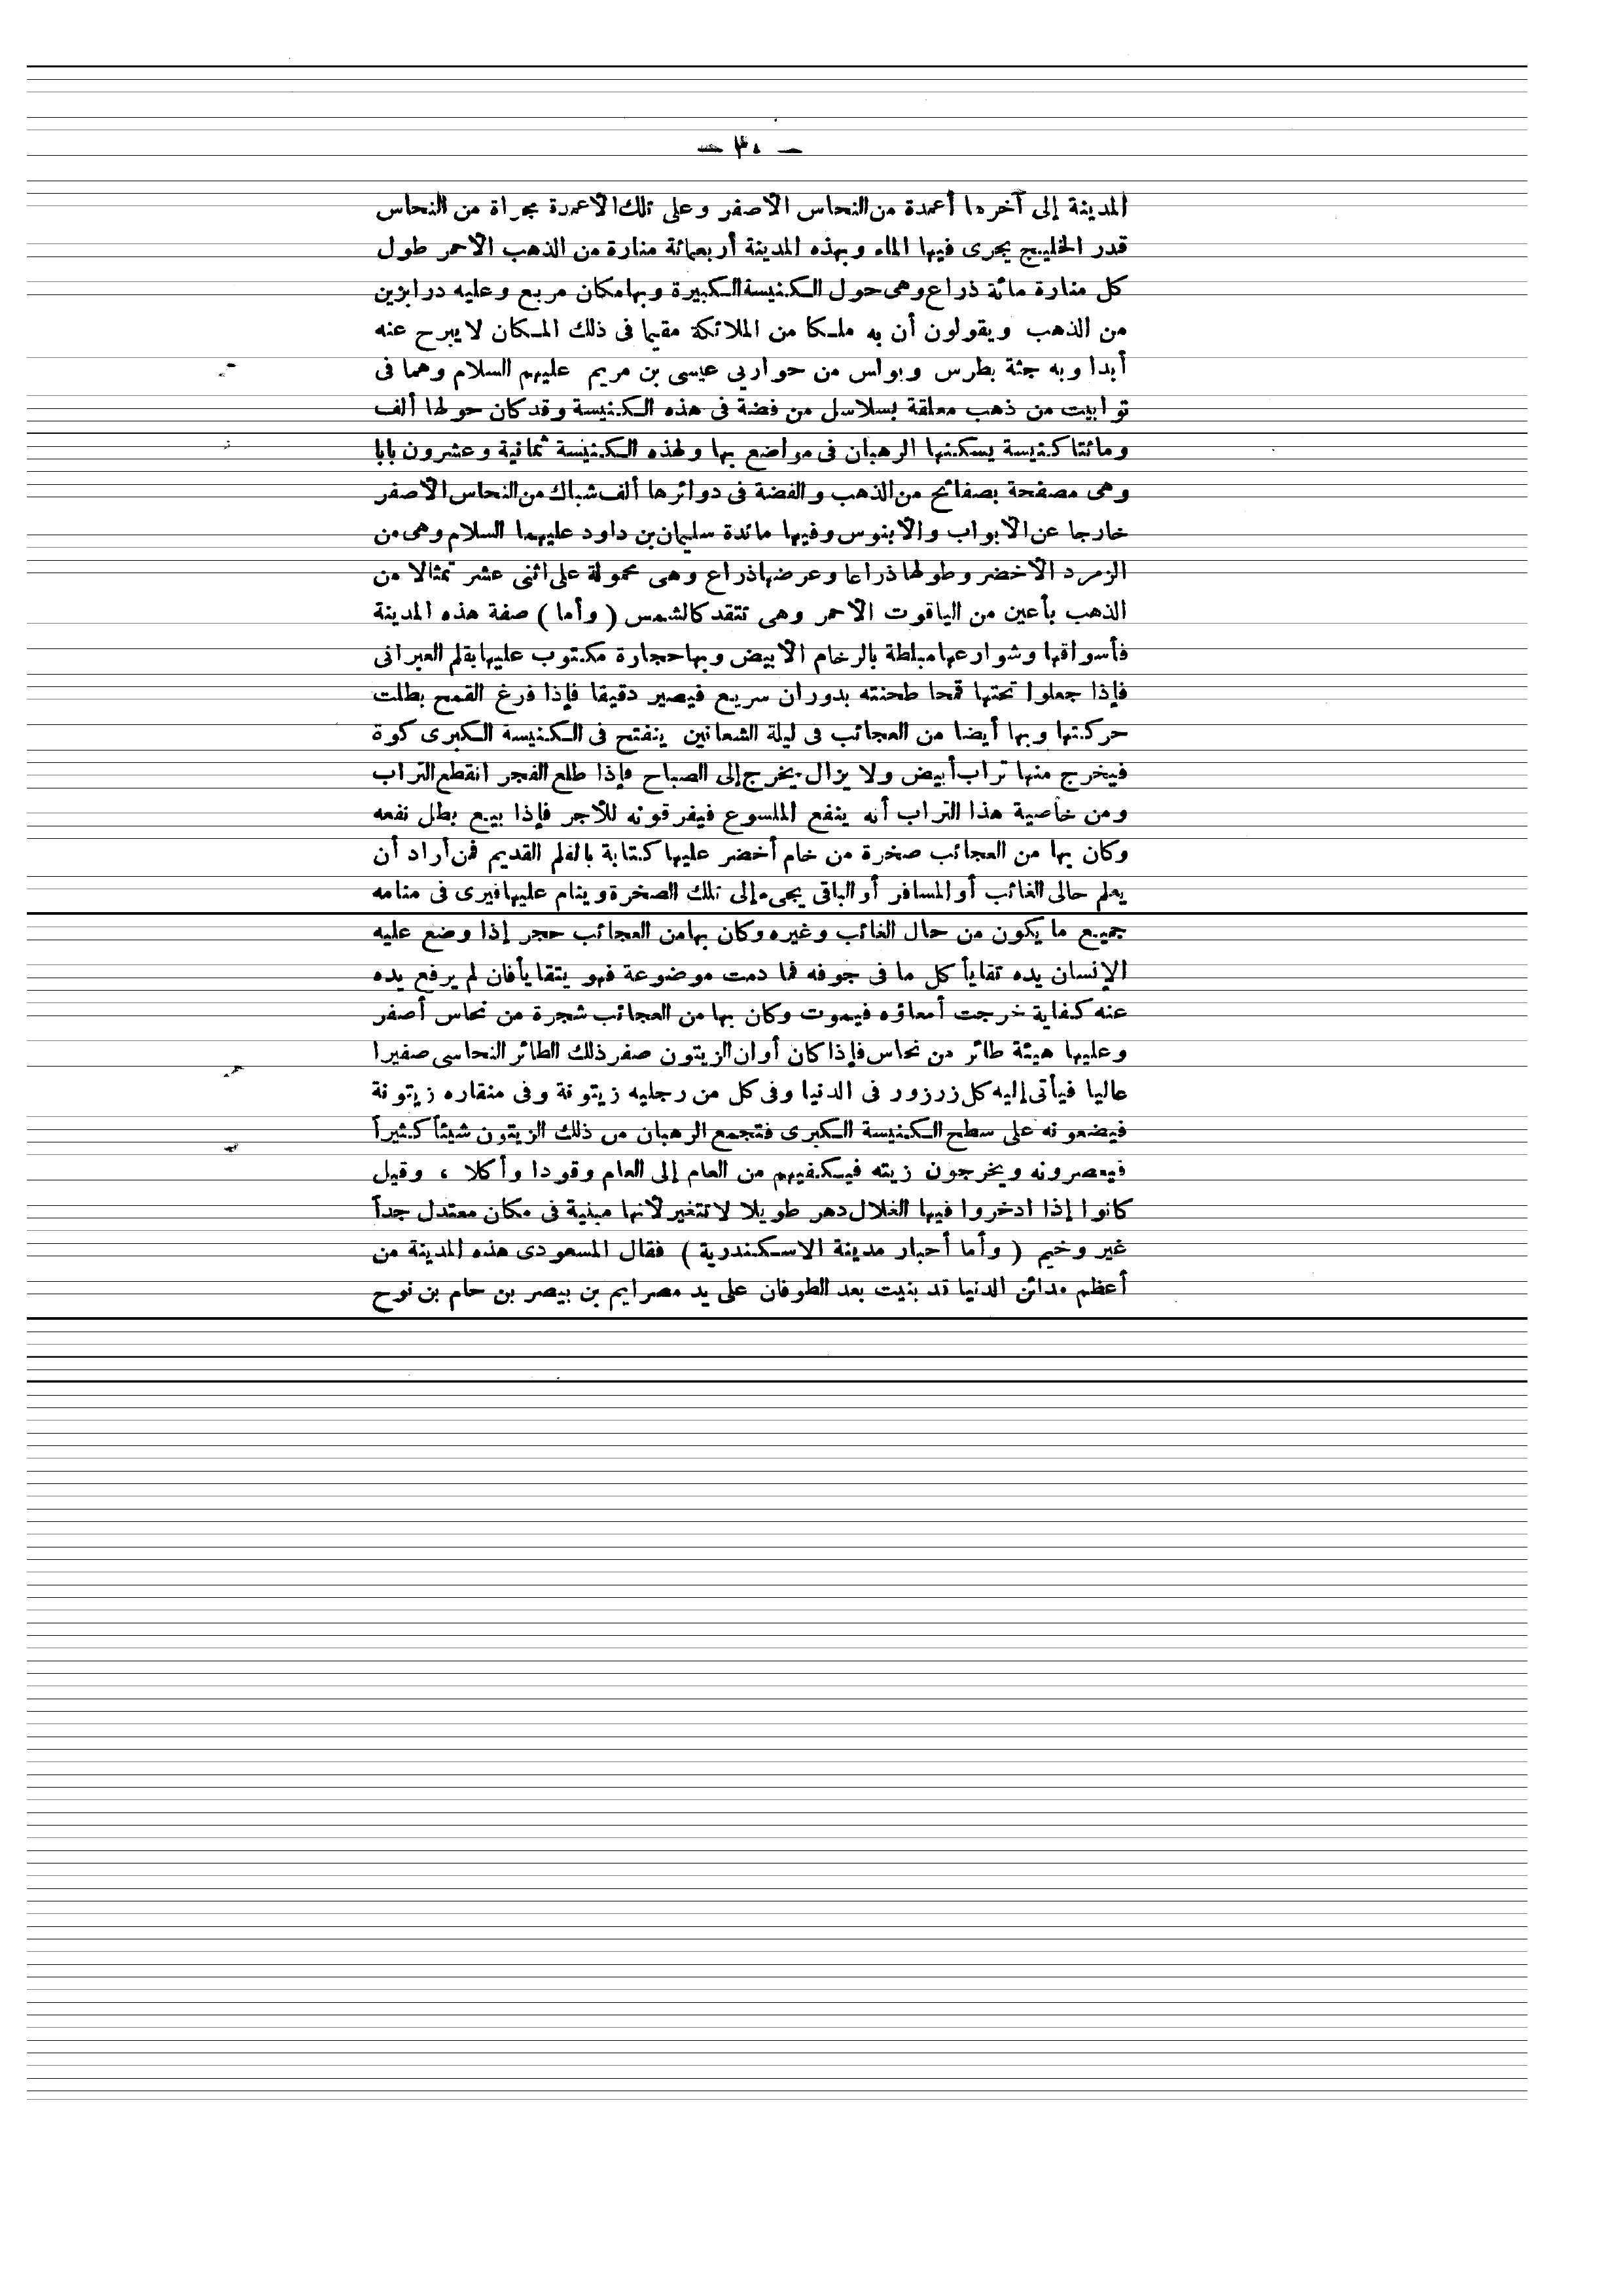 — ٣٠ —
المدينة إلى آخرها أعمدة من النحاس الأصفر وعلى تلك الأعمدة مجراة من النحاس
قدر الخليج يجرى فيها الماء وبهذه المدينة أربعمائة منارة من الذهب الأحمر طول
كل منارة مائة ذراع وهى حول الكنيسة الكبيرة وبها مكان مربع وعليه درابزين
من الذهب ويقولون أن به ملكا من الملائكة مقيما فى ذلك المكان لا يبرح عنه
أبدا وبه جثة بطرس وبولس من حواريى عيسى بن مريم عليهم السلام وهما فى
توابيت من ذهب معلقة بسلاسل من فضة فى هذه الكنيسة وقد كان حولها ألف
ومائتا كنيسة يسكنها الرهبان فى مواضع بها ولهذه الكنيسة ثمانية وعشرون بابا
وهى مصفحة بصفائح من الذهب والفضة فى دوائرها ألف شباك من النحاس الأصفر
خارجا عن الأبواب والأبنوس وفيها مائدة سليمان بن داود عليهما السلام وهى من
الزمرد الأخضر وطولها ذراعا وعرضها ذراع وهى محمولة على اثنى عشر تمثالا من
الذهب بأعين من الياقوت الأحمر وهى تتقد كالشمس ( وأما ) صفة هذه المدينة
فأسواقها وشوارعها مبلطة بالرخام الأبيض وبها حجارة مكتوب عليها بقلم العبرانى
فإذا جعلوا تحتها قمحا طحنته بدوران سريع فيصير دقيقا فإذا فرغ القمح بطلت
حركتها وبها أيضا من العجائب فى ليلة الشعانين ينفتح فى الكنيسة الكبرى كوة
فيخرج منها تراب أبيض ولا يزال يخرج إلى الصباح فإذا طلع الفجر انقطع التراب
ومن خاصية هذا التراب أنه ينفع الملسوع فيفرقونه للأجر فإذا بيع بطل نفعه
وكان بها من العجائب صخرة من خام أخضر عليها كتابة بالقلم القديم فمن أراد أن
يعلم حالى الغائب أو المسافر أو الباقى يجىء إلى تلك الصخرة وينام عليها فيرى فى منامه
جميع ما يكون من حال الغائب وغيره وكان بها من العجائب حجر إذا وضع عليه
الإنسان يده تقايأ كل ما فى جوفه فما دمت موضوعة فهو يتقايأ فان لم يرفع يده
عنه كفاية خرجت أمعاؤه فيموت وكان بها من العجائب شجرة من نحاس أصفر
وعليها هيئة طائر من نحاس فإذا كان أوان الزيتون صفر ذلك الطائر النحاسى صفيرا
عاليا فيأتى إليه كل زرزور فى الدنيا وفى كل من رجليه زيتونة وفى منقاره زيتونة
فيضعونه على سطح الكنيسة الكبرى فتجمع الرهبان من ذلك الزيتون شيئاً كثيراً
فيعصرونه ويخرجون زيته فيكفيهم من العام إلى العام وقودا وأكلا ، وقيل
كانوا إذا ادخروا فيها الغلال دهر طويلا لا تتغير لأنها مبنية فى مكان معتدل جداً
غير وخيم ( وأما أحبار مدينة الاسكندرية ) فقال المسعودى هذه المدينة من
أعظم مدائن الدنيا قد بنيت بعد الطوفان على يد مصرايم بن بيصر بن حام بن نوح